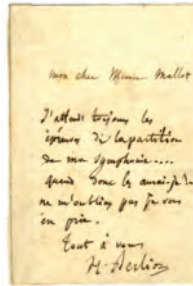 mon cher Monsieur Mallet
J'attends toujours les
épreuves de la partition
de ma symphonie....
quand donc les aurai-je?
ne m'oubliez pas je vous
en prie.
Tout à vous
H. Berlioz